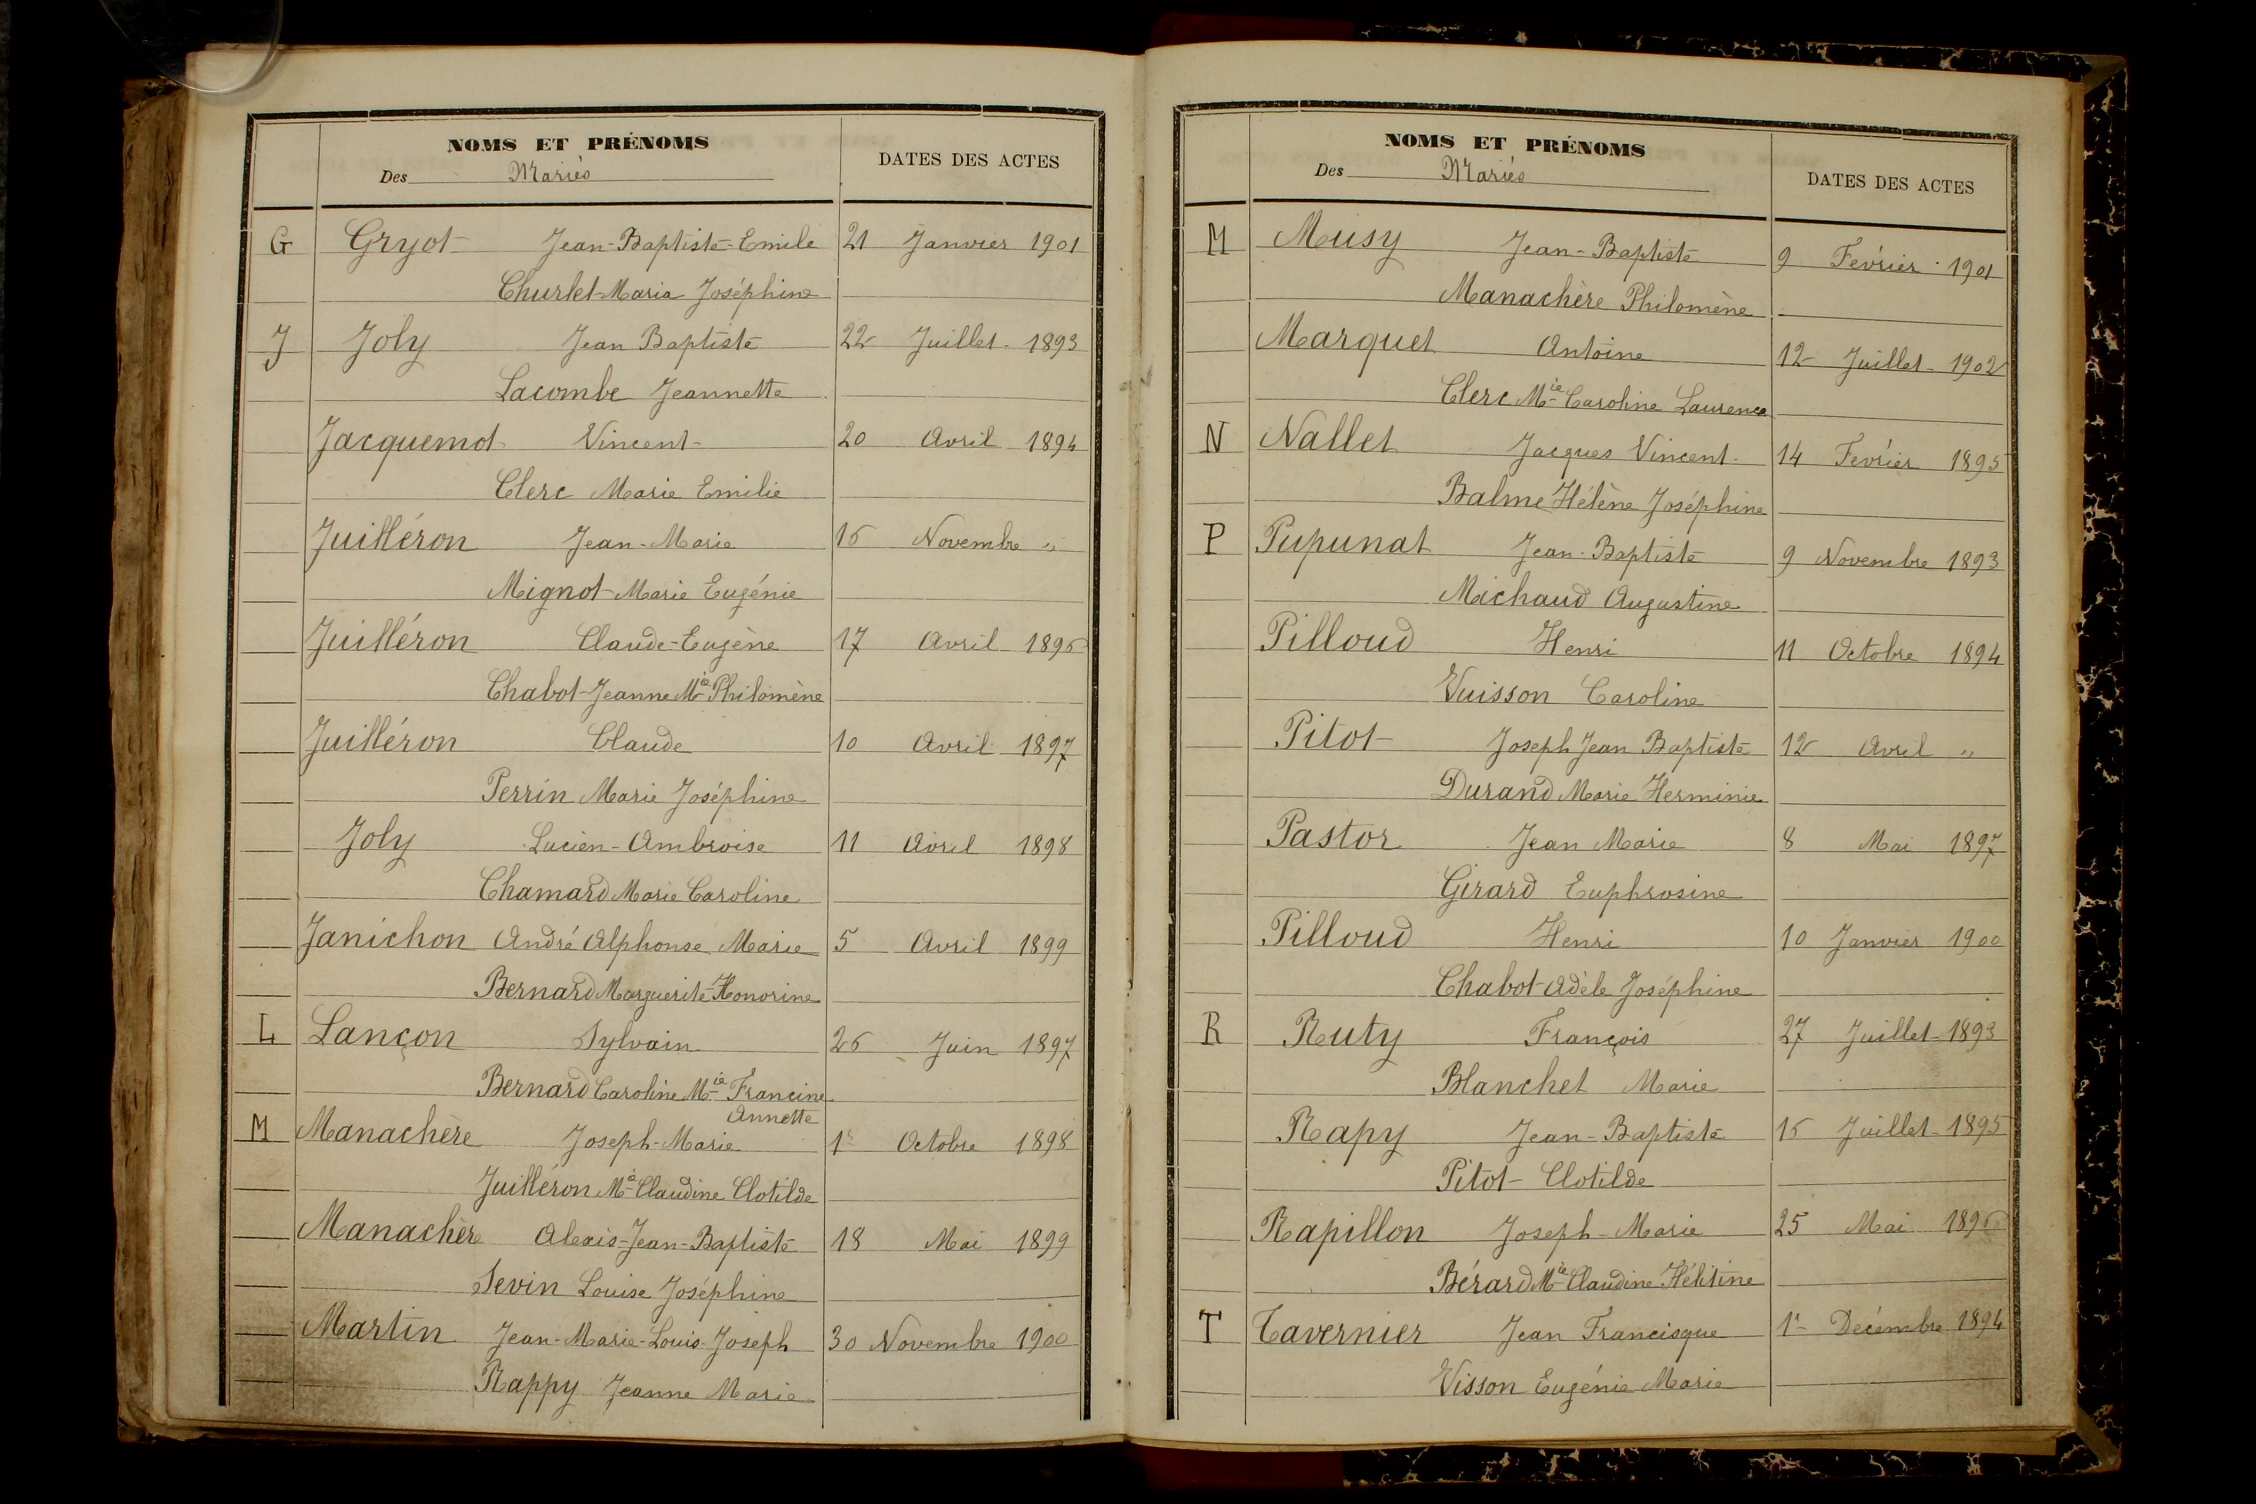 NOMS ET PRÉNOMS
Des Mariés
DATES DES ACTES
G Gryot Jean-Baptiste-Emile 21 Janvier 1901
Churlet Maria Joséphine
J Joly Jean Baptiste 22 Juillet 1893
Lacombe Jeannette
Jacquemot Vincent 20 Avril 1894
Clerc Marie Emilie
Juilléron Jean-Marie 16 Novembre "
Mignot Marie Eugénie
Juilléron Claude-Eugène 17 Avril 1896
Chabot Jeanne Mie Philomène
Juilléron Claude 10 Avril 1897
Perrin Marie Joséphine
Joly Lucien-Ambroise 11 Avril 1898
Chamard Marie Caroline
Janichon André Alphonse Marie 5 Avril 1899
Bernard Marguerite-Honorine
L Lançon Sylvain 26 Juin 1897
Bernard Caroline Mie Francine
Annette
M Manachère Joseph-Marie 1r Octobre 1898
Juilléron Mie Claudine Clotilde
Manachère Alexis-Jean-Baptiste 18 Mai 1899
Sevin Louise Joséphine
Martin Jean-Marie-Louis-Joseph 30 Novembre 1900
Rappy Jeanne Marie
NOMS ET PRÉNOMS
Des Mariés
DATES DES ACTES
M Musy Jean-Baptiste 9 Février 1901
Manachère Philomène
Marquet Antoine 12 Juillet 1902
Clerc Mie Caroline Laurence
N Nallet Jacques Vincent 14 Février 1895
Balme Hélène Joséphine
P Pupunat Jean-Baptiste 9 Novembre 1893
Michaud Augustine
Pilloud Henri 11 Octobre 1894
Vuisson Caroline
Pitot Joseph Jean Baptiste 12 Avril "
Durand Marie Herminie
Pastor Jean Marie 8 Mai 1897
Girard Euphrosine
Pilloud Henri 10 Janvier 1900
Chabot Adèle Joséphine
R Ruty François 27 Juillet 1893
Blanchet Marie
Rapy Jean-Baptiste 16 Juillet 1895
Pitot Clotilde
Rapillon Joseph-Marie 25 Mai 1896
Bérard Mie Claudine Hélitine
T Tavernier Jean Francisque 1r Décembre 1894
Visson Eugénie Marie